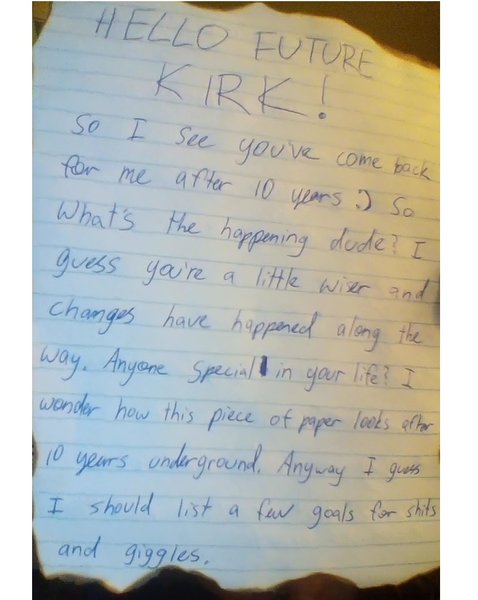 HELLO FUTURE
KIRK!
So I see you've come back
for me after 10 years :) So
What's the happening dude? I
guess you're a little wiser and
changes have happened along the
way. Anyone special in your life? I
wonder how this piece of paper looks after
10 years underground. Anyway I guess
I should list a few goals for shits
and giggles.